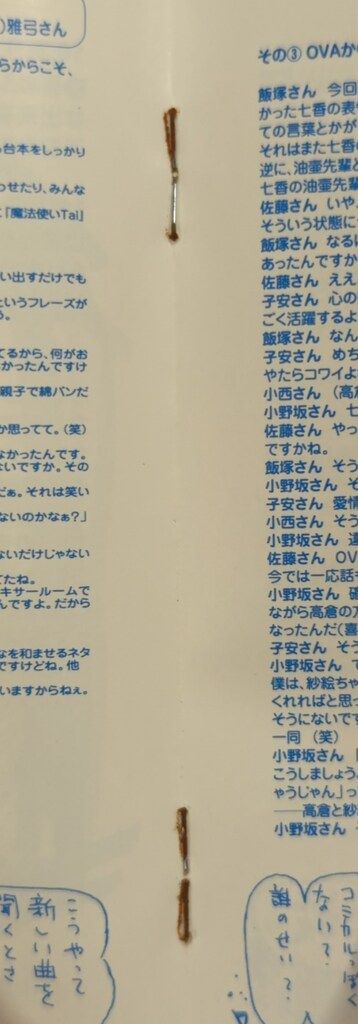 雅弓さん
らからこそ、
台本をしっかり
わせたり、みんな
「魔法使いTai」
い出すだけでも
というフレーズが
う。
てるから、何がお
かったんですけ
親子で綿パンだ
か思ってて。(笑)
なかったんです。
ないですか。その
だぁ。それは笑い
ないのかなぁ?」
ないだけじゃない
てたね。
キサールームで
んですよ。だから
なを和ませるネタ
ですけどね。他
いますからねぇ。
こうやって
新しい曲を
聞くとさ
その③ OVAか
飯塚さん 今回
かった七香の表
ての言葉とかが
それはまた七香の
逆に、油壷先輩と
七香の油壷先輩
佐藤さん いや、
そういう状態に
飯塚さん なるほ
あったんですか
佐藤さん ええ
子安さん 心の
ごく活躍するよ
飯塚さん なん
子安さん めち
やたらコワイよ
小西さん (高
小野坂さん 七
佐藤さん やっ
ですかね。
飯塚さん そう
小野坂さん そ
子安さん 愛情
小西さん そう
小野坂さん 違
佐藤さん OV
今では一応話
小野坂さん 確
ながら高倉の
なったんだ(喜
子安さん そう
小野坂さん で
僕は、紗絵ちゃ
くれればと思っ
そうにないです
一同 (笑)
小野坂さん
こうしましょう。
ゃうじゃん」っ
──高倉と紗
小野坂さん
コミカルっぽく
ない?
誰のせい?